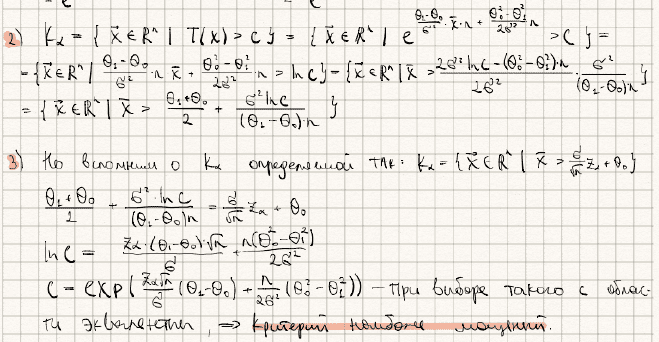 2) K_α = { x⃗ ∈ R^n | T(x) > c } = { x⃗ ∈ R^n | e^{\frac{θ₁-θ₀}{σ²}·x̄·n + \frac{θ₀²-θ₁²}{2σ²}n} > C } =
= { x⃗ ∈ R^n | \frac{θ₁-θ₀}{σ²}·n x̄ + \frac{θ₀²-θ₁²}{2σ²}·n > ln c } = { x⃗ ∈ R^n | x̄ > \frac{2σ² ln c - (θ₀²-θ₁²)·n}{2σ²} · \frac{σ²}{(θ₁-θ₀)n} }
= { x⃗ ∈ R^n | x̄ > \frac{θ₁+θ₀}{2} + \frac{σ² ln c}{(θ₁-θ₀)·n} }
3) Но вспомним о K_α определенной так: K_α = { x⃗ ∈ R^n | x̄ > \frac{σ}{√n} z_α + θ₀ }
\frac{θ₁+θ₀}{2} + \frac{σ²·ln c}{(θ₁-θ₀)n} = \frac{σ}{√n} z_α + θ₀
ln C = \frac{z_α·(θ₁-θ₀)·√n}{σ} + \frac{n(θ₀²-θ₁²)}{2σ²}
C = exp( \frac{z_α√n}{σ} (θ₁-θ₀) + \frac{n}{2σ²} (θ₀²-θ₁²) ) – при выборе такого с облас-
ти эквивалентны, ⇒ критерий наиболее мощный.